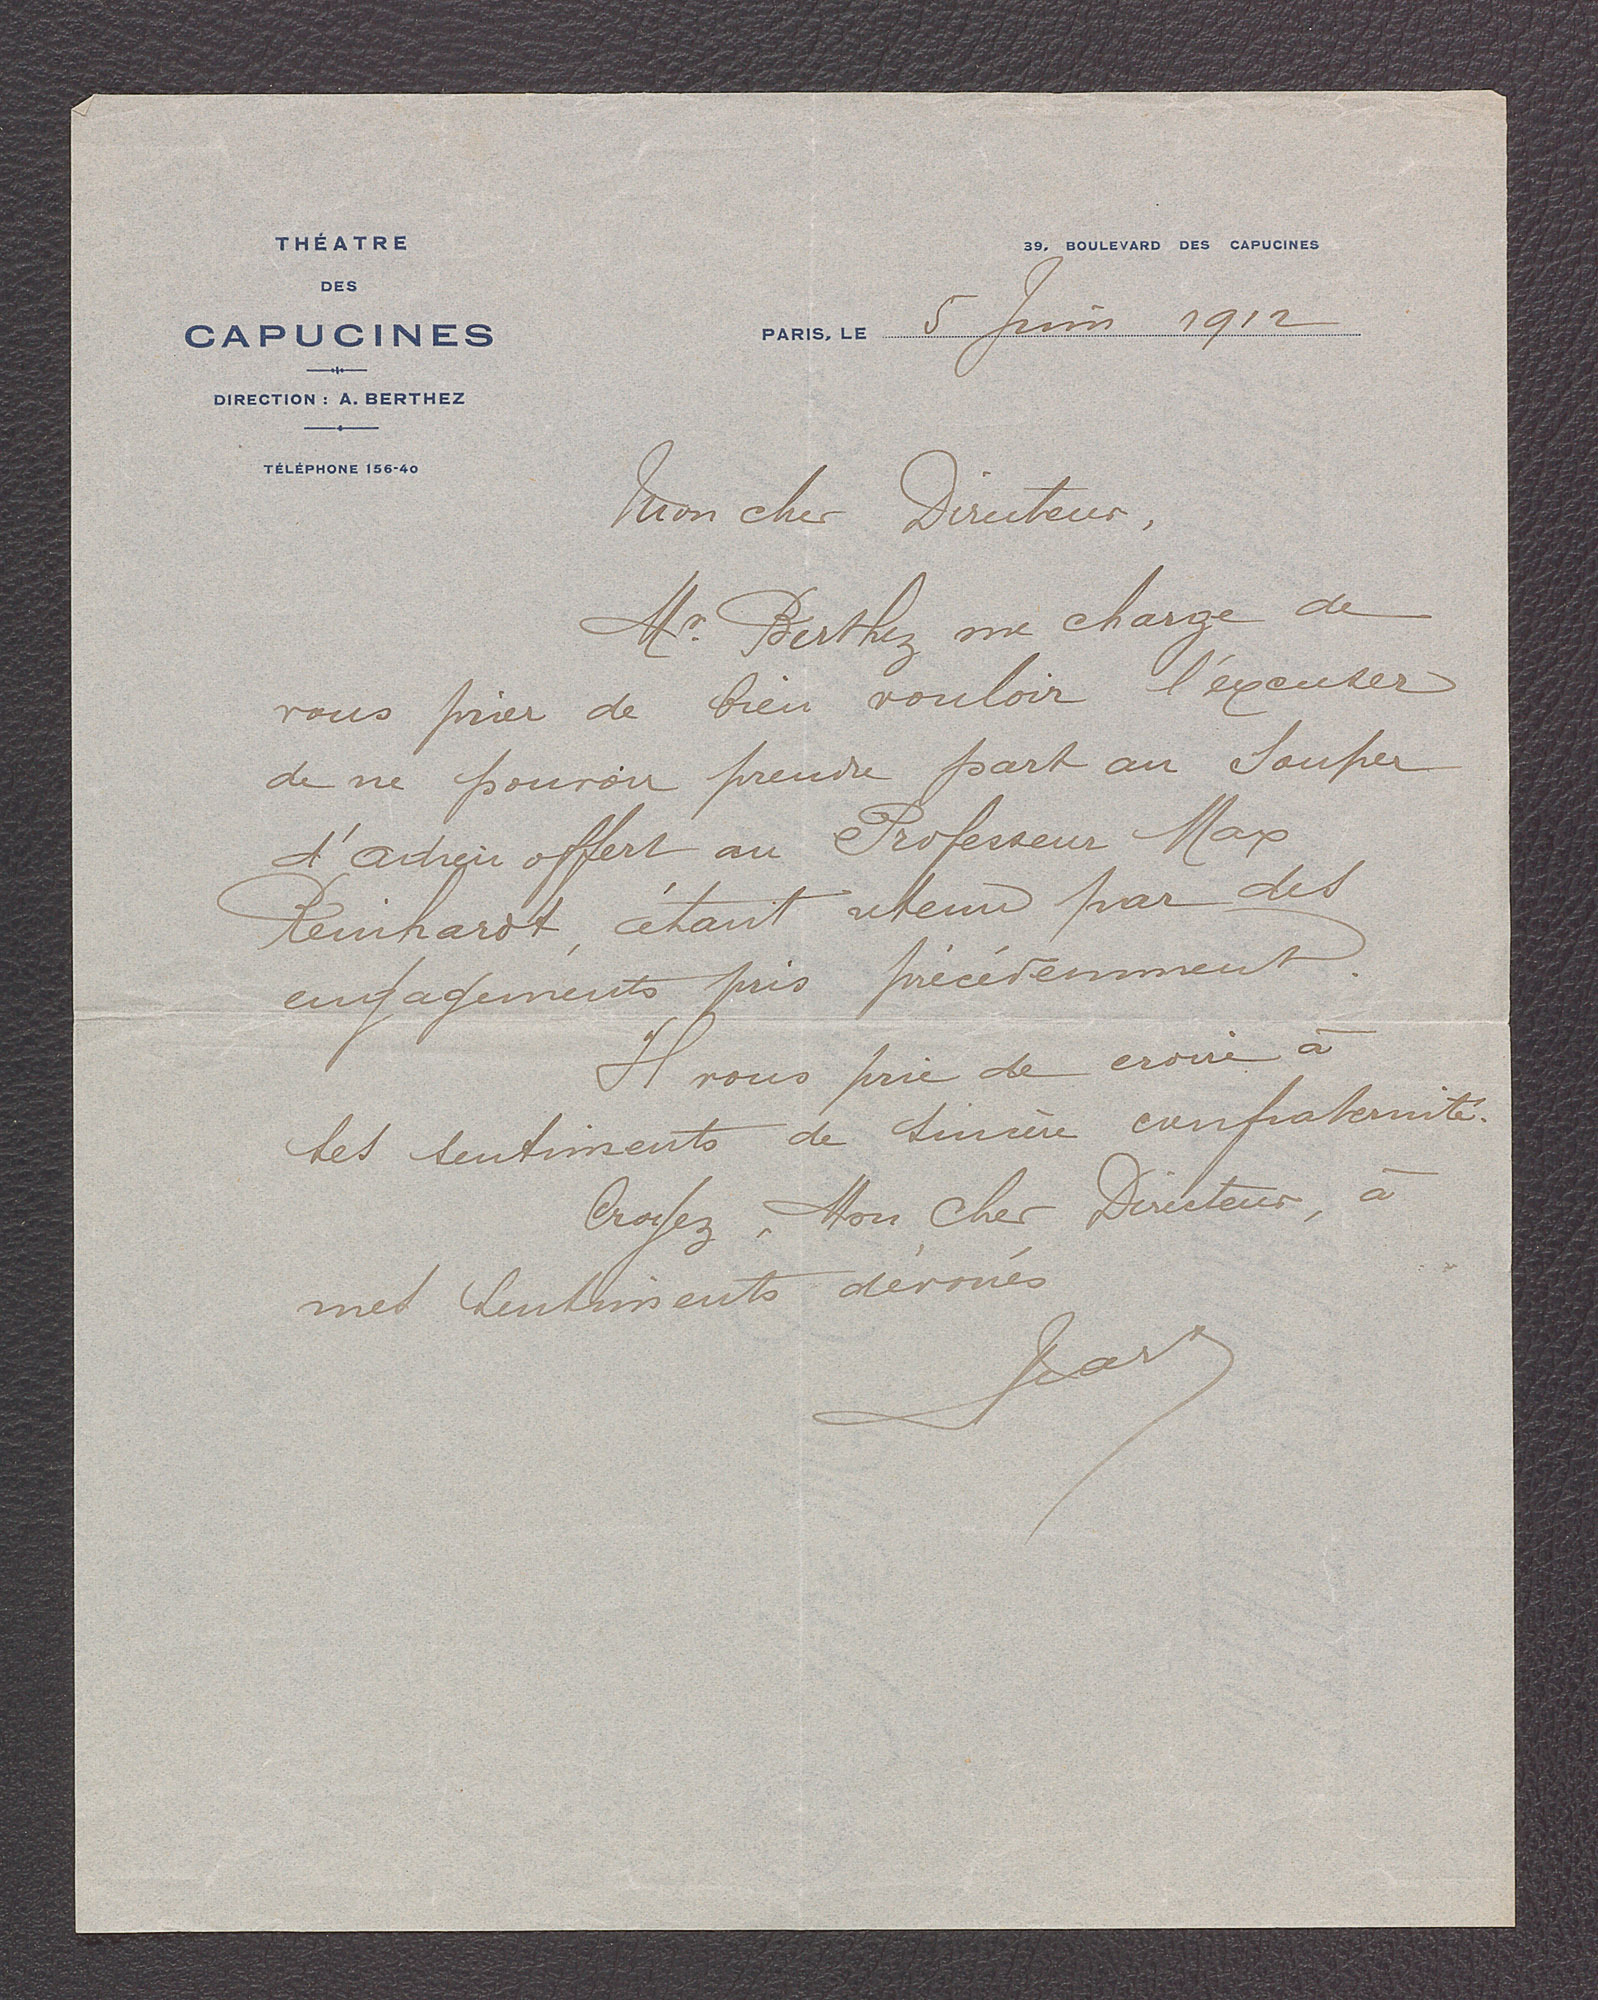 THÉATRE
DES
CAPUCINES
DIRECTION : A. BERTHEZ
TÉLÉPHONE 156-40
39, BOULEVARD DES CAPUCINES
PARIS, LE 5 Juin 1912
Mon cher Directeur,
Mr. Berthez me charge de
vous prier de bien vouloir l'éxcuser
de ne pouvoir prendre part au Souper
d'adieu offert au Professeur Max
Reinhardt, étant retenu par des
engagements pris précédemment.
Il vous prie de croire à
ses sentiments de sincère confraternité.
Croyez, Mon Cher Directeur, à
mes sentiments dévoués